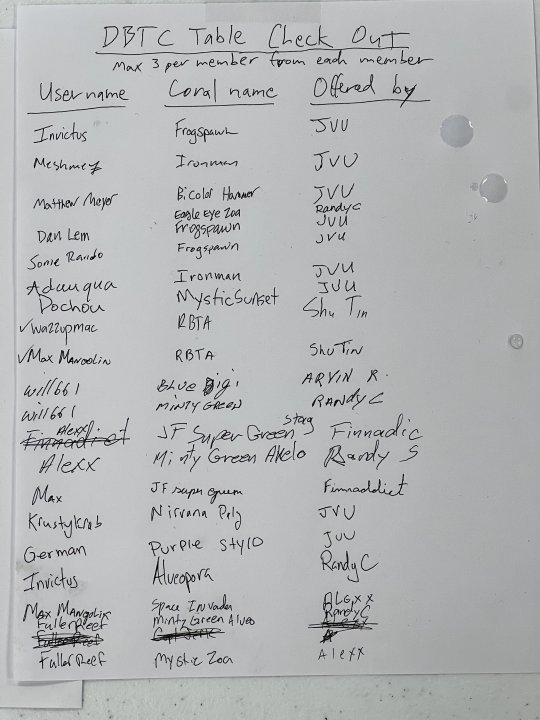 DBTC Table Check Out
Max 3 per member from each member
Username Coral name Offered by
Invictus Frogspawn JVU
Meshmez Ironman JVU
Matthew Meyer Bicolor Hammer JVU
Eagle Eye Zoa RandyC
Dan Lem Frogspawn JVU
Sonie Rando Frogspawn JVU
Adauqua Ironman JVU
Pochou Mystic Sunset JVU
✓wazzupmac RBTA Shu Tin
✓Max Mangolin RBTA Shu Tin
will661 Blue Digi ARVIN R.
will661 MINTY GREEN RANDY C
Alexx JF Super Green Stag Finnadic
Alexx Minty Green Alvelo Randy S
Max JF super green Finnaddict
Krustykrab Nirvana Poly JVU
German Purple Stylo JVU
Invictus Alveopora RandyC
Max Mangolin Space Invader Alexx
FullerReef Minty Green Alveo RandyC
FullerReef Mystic Zoa Alexx